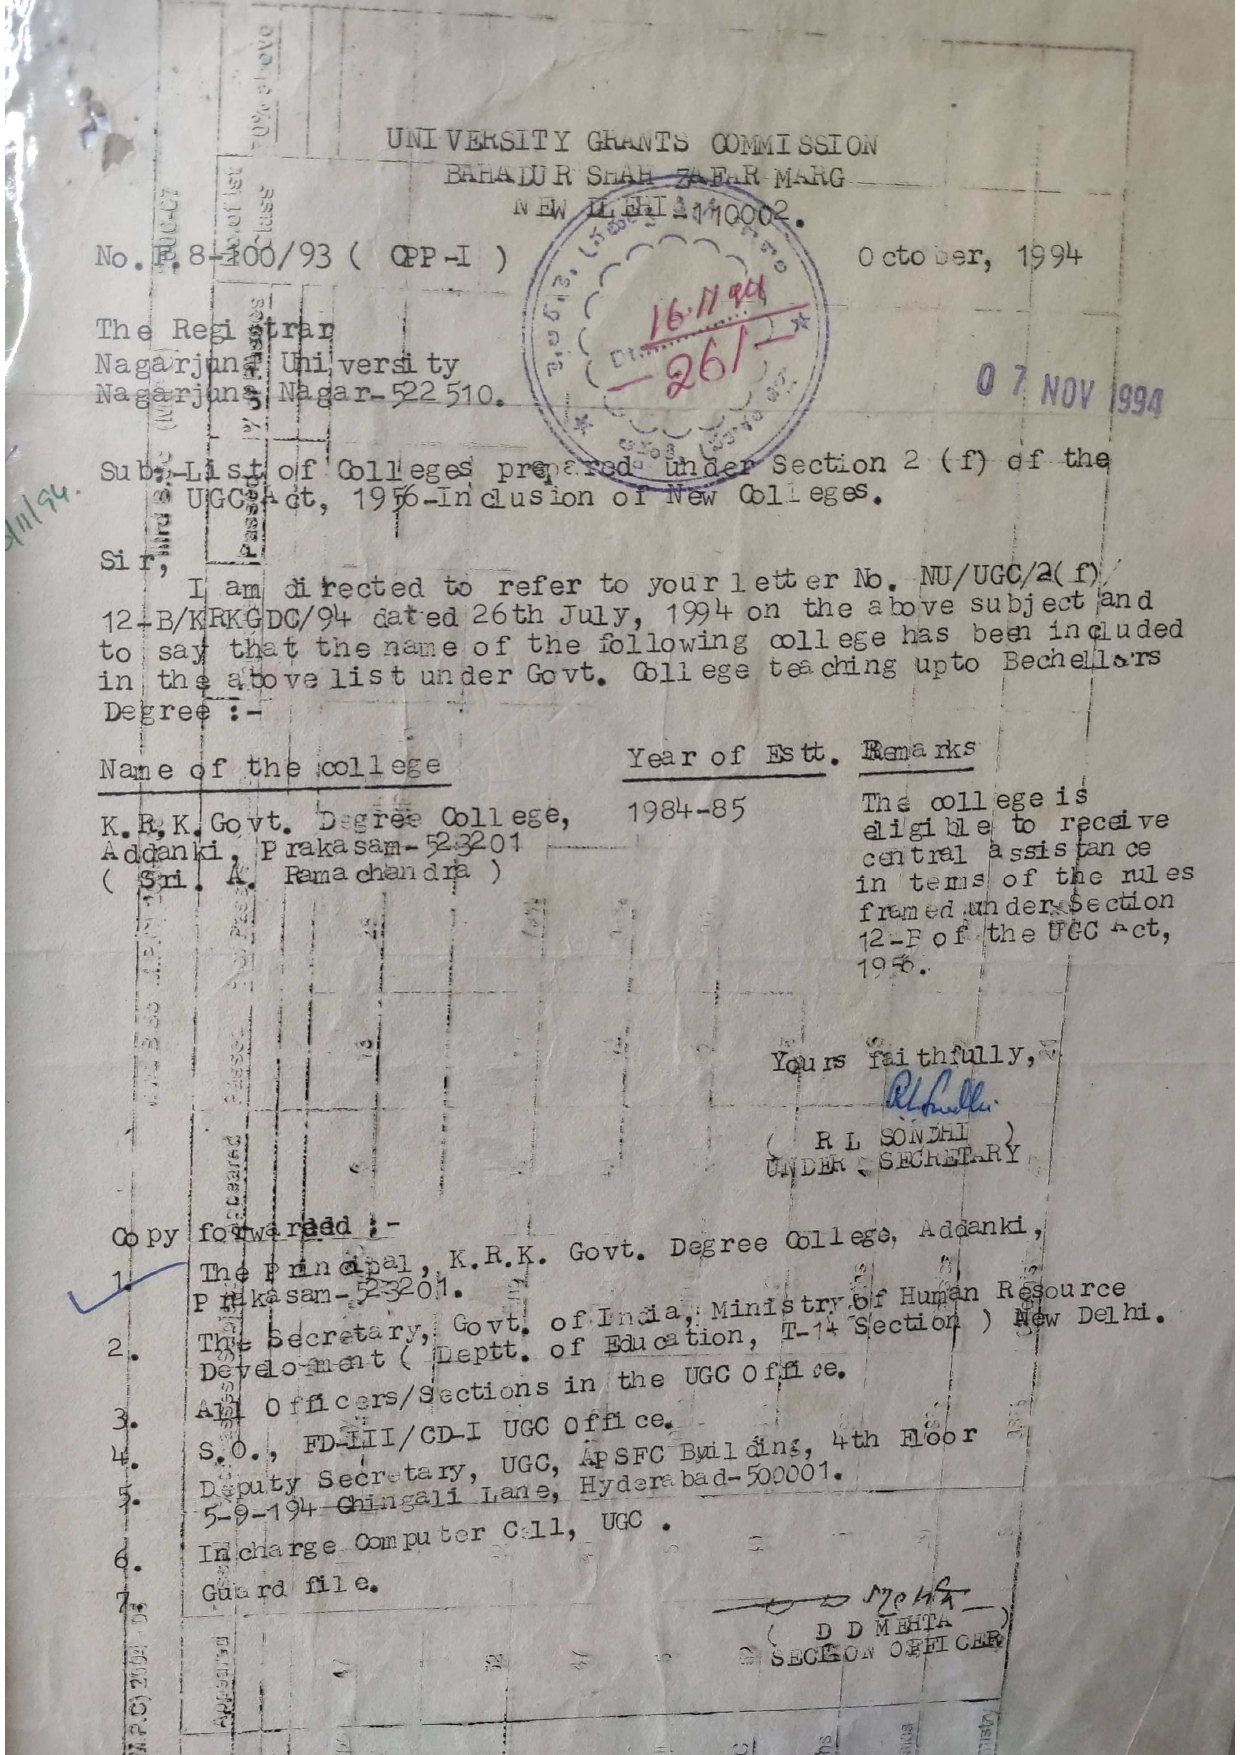 UNIVERSITY GRANTS COMMISSION
BAHADUR SHAH ZAFAR MARG
NEW DELHI-110002.
No.F.8-200/93 ( CPP-I )
October, 1994
16.11.94
261
The Registrar
Nagarjuna University
Nagarjuna Nagar-522510.
07 NOV 1994
Sub:-List of Colleges prepared under Section 2 (f) of the
UGC Act, 1956-Inclusion of New Colleges.
/11/94.
Sir,
I am directed to refer to your letter No. NU/UGC/2(f)/
12-B/KRKGDC/94 dated 26th July, 1994 on the above subject and
to say that the name of the following college has been included
in the above list under Govt. College teaching upto Bechellors
Degree :-
Name of the college
Year of Estt.
Remarks
K.R.K.Govt. Degree College,
Addanki, Prakasam-523201
( Sri. A. Ramachandra )
1984-85
The college is
eligible to receive
central assistance
in tems of the rules
framed under Section
12-B of the UGC Act,
1956.
Yours faithfully,
( R L SONDHI )
UNDER SECRETARY
Copy forwardd :-
1. The Principal, K.R.K. Govt. Degree College, Addanki,
Prakasam-523201.
2. The Secretary, Govt. of India, Ministry of Human Resource
Develo-ment ( Deptt. of Education, T-14 Section ) New Delhi.
3. All Officers/Sections in the UGC Office.
4. S.O., FD-III/CD-I UGC Office.
5. Deputy Secretary, UGC, APSFC Building, 4th Floor
5-9-194 Chingali Lane, Hyderabad-500001.
6. Incharge Computer Cell, UGC .
7. Guard file.
Mehta
( D D MEHTA )
SECTION OFFICER